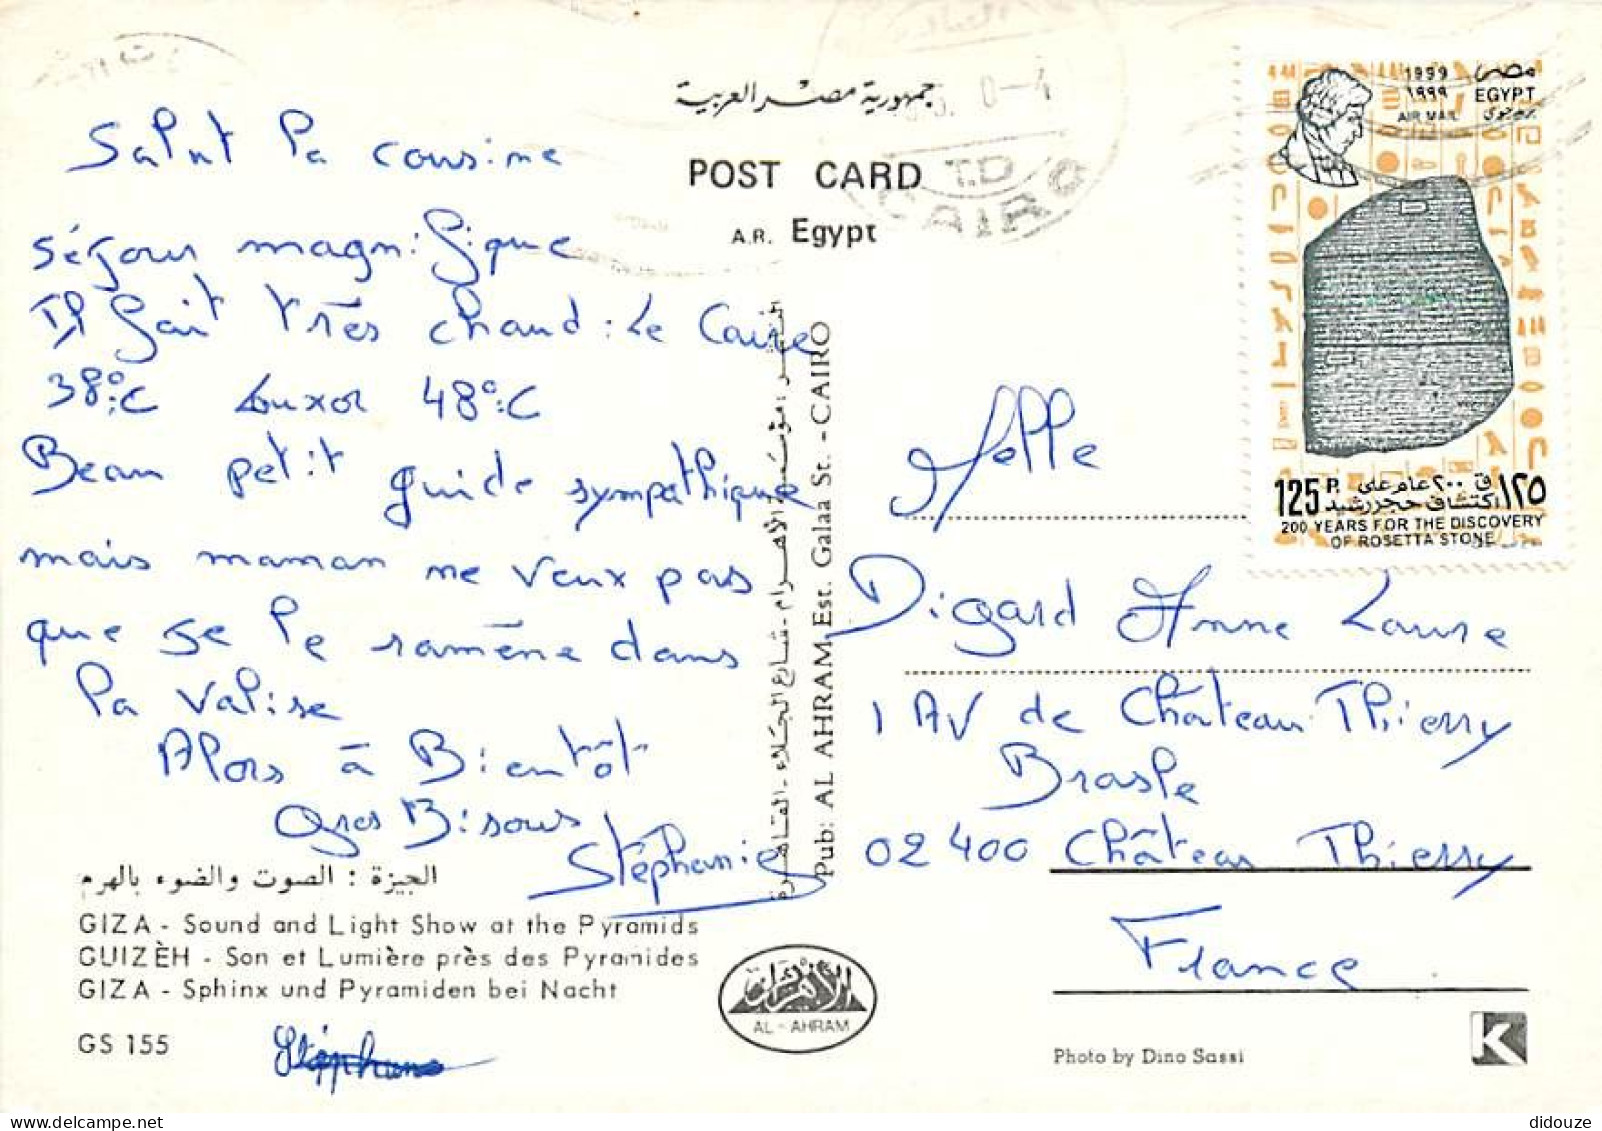 Salut la cousine
séjour magnifique
Il fait très chaud : Le Caire
38°C Louxor 48°C
Beau petit guide sympathique
mais maman ne veux pas
que je le ramène dans
la valise
Alors à Bientôt
Gros Bisous
Stéphanie
الجيزة : الصوت والضوء بالهرم
GIZA - Sound and Light Show at the Pyramids
GUIZÈH - Son et Lumière près des Pyramides
GIZA - Sphinx und Pyramiden bei Nacht
GS 155
جمهورية مصر العربية
POST CARD
A.R. Egypt
T.D
CAIRO
Pub: AL AHRAM, Est. Galaa St. - CAIRO
الأهرام
AL - AHRAM
1999 مصر
١٩٩٩ EGYPT
AIR MAIL بريد جوى
125 P. ٢٠٠ عام على ١٢٥ ق
اكتشاف حجر رشيد
200 YEARS FOR THE DISCOVERY
OF ROSETTA STONE
Melle
Digard Anne Laure
1 AV de Château Thierry
Brasle
02400 Château Thierry
France
Photo by Dino Sassi
K
didouze